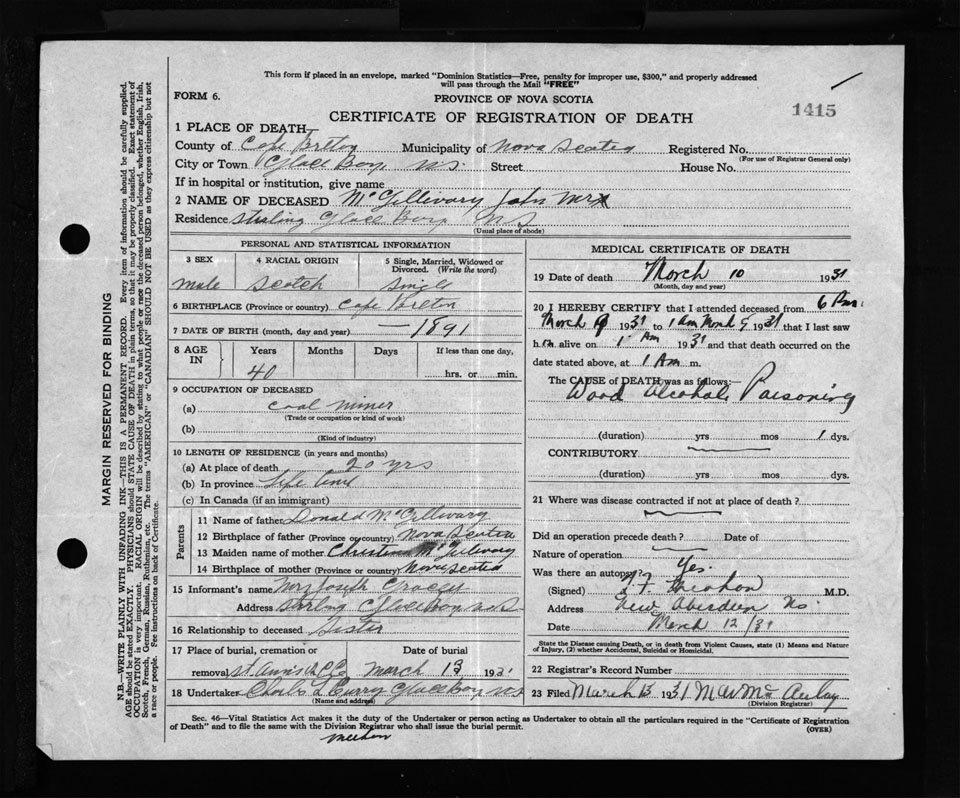 This form if placed in an envelope, marked "Dominion Statistics—Free, penalty for improper use, $300," and properly addressed
will pass through the Mail "FREE"
FORM 6.
PROVINCE OF NOVA SCOTIA
1415
CERTIFICATE OF REGISTRATION OF DEATH
1 PLACE OF DEATH
County of Cape Breton Municipality of Nova Scotia Registered No.
(For use of Registrar General only)
City or Town Glace Bay N.S. Street House No.
If in hospital or institution, give name
2 NAME OF DECEASED McGillivary John
Residence Sterling Glace Bay N S
(Usual place of abode)
PERSONAL AND STATISTICAL INFORMATION
3 SEX 4 RACIAL ORIGIN 5 Single, Married, Widowed or Divorced. (Write the word)
male Scotch Single
6 BIRTHPLACE (Province or country) Cape Breton
7 DATE OF BIRTH (month, day and year) — 1891
8 AGE IN Years Months Days If less than one day,
40 hrs. or min.
9 OCCUPATION OF DECEASED
(a) Coal miner
(Trade or occupation or kind of work)
(b)
(Kind of industry)
10 LENGTH OF RESIDENCE (in years and months)
(a) At place of death 20 yrs
(b) In province life time
(c) In Canada (if an immigrant)
Parents
11 Name of father Donald McGillivary
12 Birthplace of father (Province or country) Nova Scotia
13 Maiden name of mother Christina McGillivary
14 Birthplace of mother (Province or country) Nova Scotia
15 Informant's name Mrs Joseph
Address Sterling Glace Bay N.S
16 Relationship to deceased Sister
17 Place of burial, cremation or removal, St Anns Date of burial March 13 1931
18 Undertaker Charls L Curry Glace Bay N.S
(Name and address)
MEDICAL CERTIFICATE OF DEATH
19 Date of death March 10 1931
(Month, day and year)
20 I HEREBY CERTIFY that I attended deceased from 6 Pm.
March 9 1931 to 1 am March 1931 that I last saw
h m alive on 1 Am 1931 and that death occurred on the
date stated above, at 1 Am m.
The CAUSE of DEATH was as follows:—
Wood Alcohol Poisoning
(duration) yrs mos 1 dys.
CONTRIBUTORY
(duration) yrs mos dys.
21 Where was disease contracted if not at place of death?
Did an operation precede death? Date of
Nature of operation
Was there an autopsy? Yes.
(Signed) M.D.
Address New Aberdeen N.S
Date March 12/31
State the Disease causing Death, or in death from Violent Causes, state (1) Means and Nature
of Injury, (2) whether Accidental, Suicidal or Homicidal.
22 Registrar's Record Number
23 Filed March 13 1931 McAulay
(Division Registrar)
Sec. 46—Vital Statistics Act makes it the duty of the Undertaker or person acting as Undertaker to obtain all the particulars required in the "Certificate of Registration
of Death" and to file the same with the Division Registrar who shall issue the burial permit.
(OVER)
MARGIN RESERVED FOR BINDING
N.B.—WRITE PLAINLY WITH UNFADING INK—THIS IS A PERMANENT RECORD. Every item of information should be carefully supplied.
AGE should be stated EXACTLY. PHYSICIANS should STATE CAUSE OF DEATH in plain terms, so that it may be properly classified. Exact statement of
OCCUPATION is very important. RACIAL ORIGIN will be described by stating to what people or race the deceased person belonged, whether English, Irish,
Scotch, French, German, Russian, Ruthenian, etc. The terms "AMERICAN" or "CANADIAN" SHOULD NOT BE USED as they express citizenship but not
a race or people. See instructions on back of Certificate.